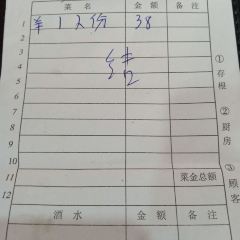 菜名 金额 备注
1 羊1大份 38
2
3
4
5
6
7
8
9
10
11 菜金总额
12
酒水 金额 备注
①存根 ②厨房 ③顾客